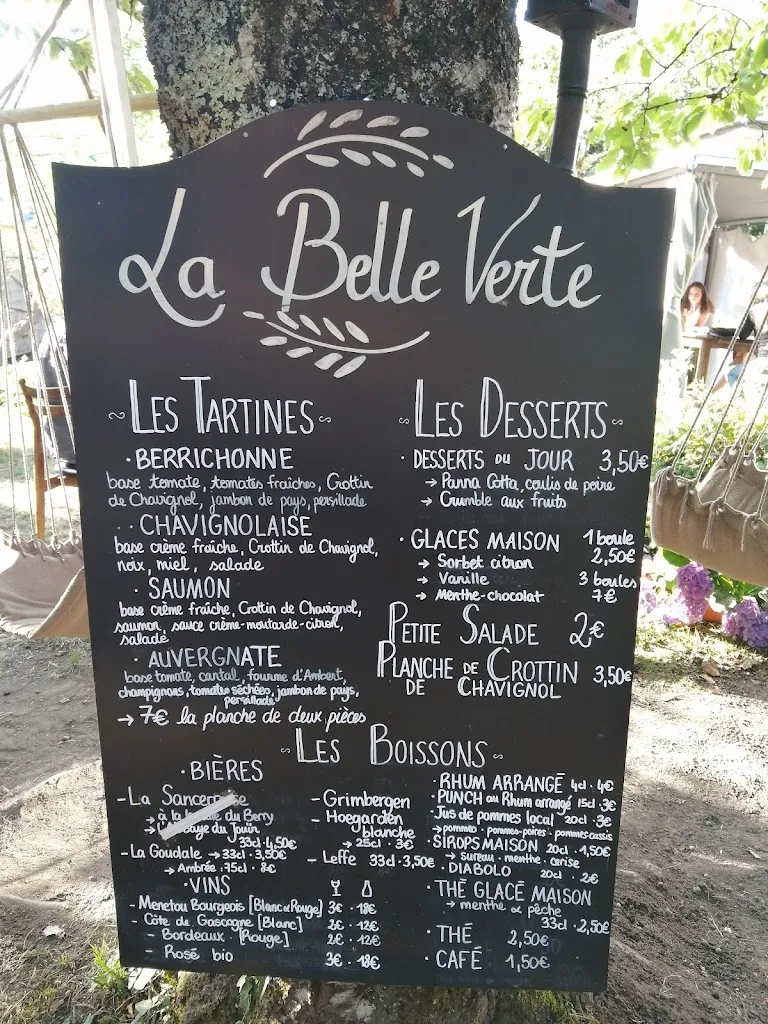 La Belle Verte
~ LES TARTINES ~
· BERRICHONNE
base tomate, tomates fraîches, Crottin
de Chavignol, jambon de pays, persillade
· CHAVIGNOLAISE
base crème fraîche, Crottin de Chavignol,
noix, miel, salade
· SAUMON
base crème fraîche, Crottin de Chavignol,
saumon, sauce crème-moutarde-citron,
salade
· AUVERGNATE
base tomate, cantal, fourme d'Ambert,
champignons, tomates séchées, jambon de pays,
persillade
→ 7€ la planche de deux pièces
~ LES DESSERTS ~
· DESSERTS DU JOUR 3,50€
→ Panna Cotta, coulis de poire
→ Crumble aux fruits
· GLACES MAISON 1 boule
2,50€
→ Sorbet citron
→ Vanille 3 boules
→ Menthe-chocolat 7€
PETITE SALADE 2€
PLANCHE DE CROTTIN 3,50€
DE CHAVIGNOL
~ LES BOISSONS ~
· BIÈRES
- La
→ à la du Berry
→ du Jouïn
33cl 4,50€
- La Goudale → 33cl · 3,50€
→ Ambrée : 75cl · 8€
- Grimbergen
- Hoegarden
blanche
→ 25cl · 3€
- Leffe 33cl · 3,50€
· VINS
- Menetou Bourgeois [Blanc & Rouge] 3€ · 18€
- Côte de Gascogne [Blanc] 2€ · 12€
- Bordeaux [Rouge] 2€ · 12€
- Rosé bio 3€ · 18€
· RHUM ARRANGÉ 4cl · 4€
· PUNCH au Rhum arrangé 15cl · 3€
· Jus de pommes local 20cl · 3€
→ pommes · pommes-poires · pommes cassis
· SIROPS MAISON 20cl · 1,50€
→ sureau · menthe · cerise
· DIABOLO 20cl · 2€
· THÉ GLACÉ MAISON
→ menthe & pêche
33cl · 2,50€
· THÉ 2,50€
· CAFÉ 1,50€